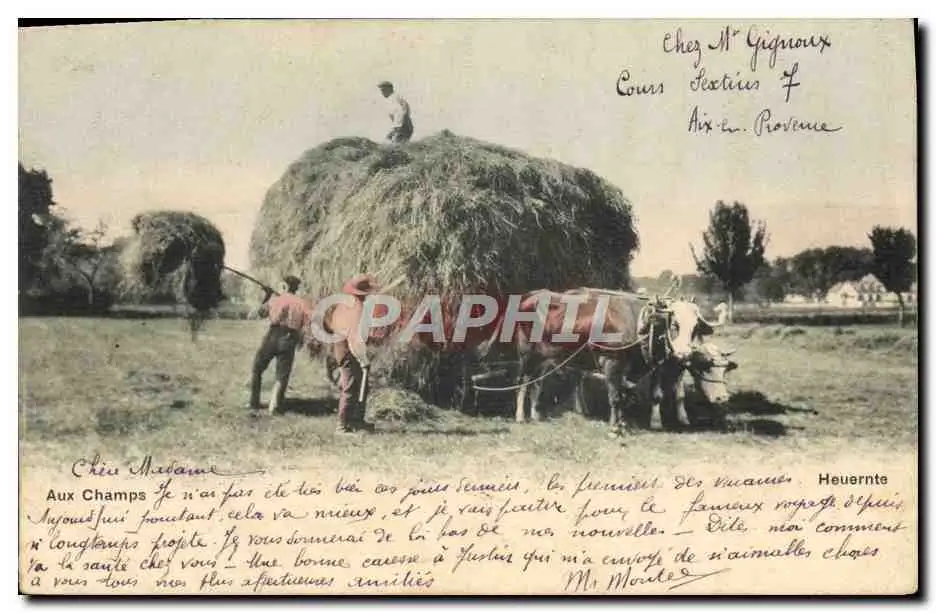 Chez Mr Gignoux
Cours Sextius 7
Aix-en-Provence
CPAPHIL
Chère Madame
Aux Champs
Heuernte
Je n'ai pas été très bien ces jours derniers, les premiers des vacances.
Aujourd'hui pourtant, cela va mieux, et je vais partir pour le fameux voyage depuis
si longtemps projeté. Je vous donnerai de là bas de mes nouvelles - Dites moi comment
va la santé chez vous - Une bonne caresse à Justin qui m'a envoyé de si aimables choses
à vous tous mes plus affectueuses amitiés